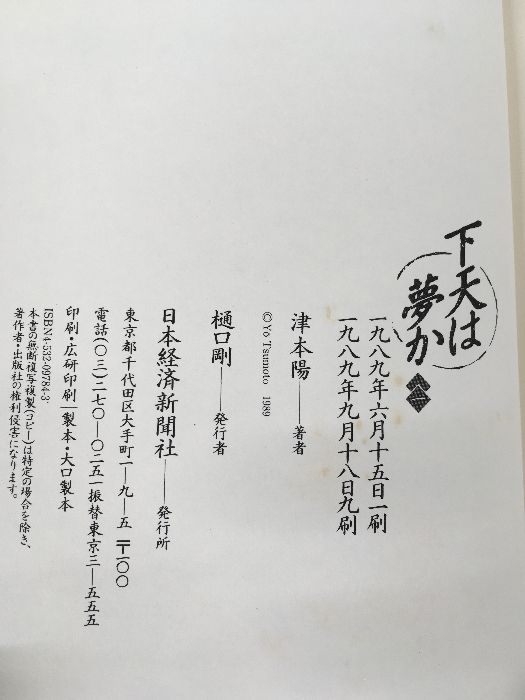 下天は
夢か
一九八九年六月十五日一刷
一九八九年九月十八日九刷
津本陽——著者
© Yō Tsumoto 1989
樋口剛——発行者
日本経済新聞社——発行所
東京都千代田区大手町一—九—五 〒一〇〇
電話(〇三)二七〇—〇二五一振替東京三—五五五
印刷・広研印刷|製本・大口製本
ISBN4-532-09784-3
本書の無断複写複製(コピー)は特定の場合を除き、
著作者・出版社の権利侵害になります。